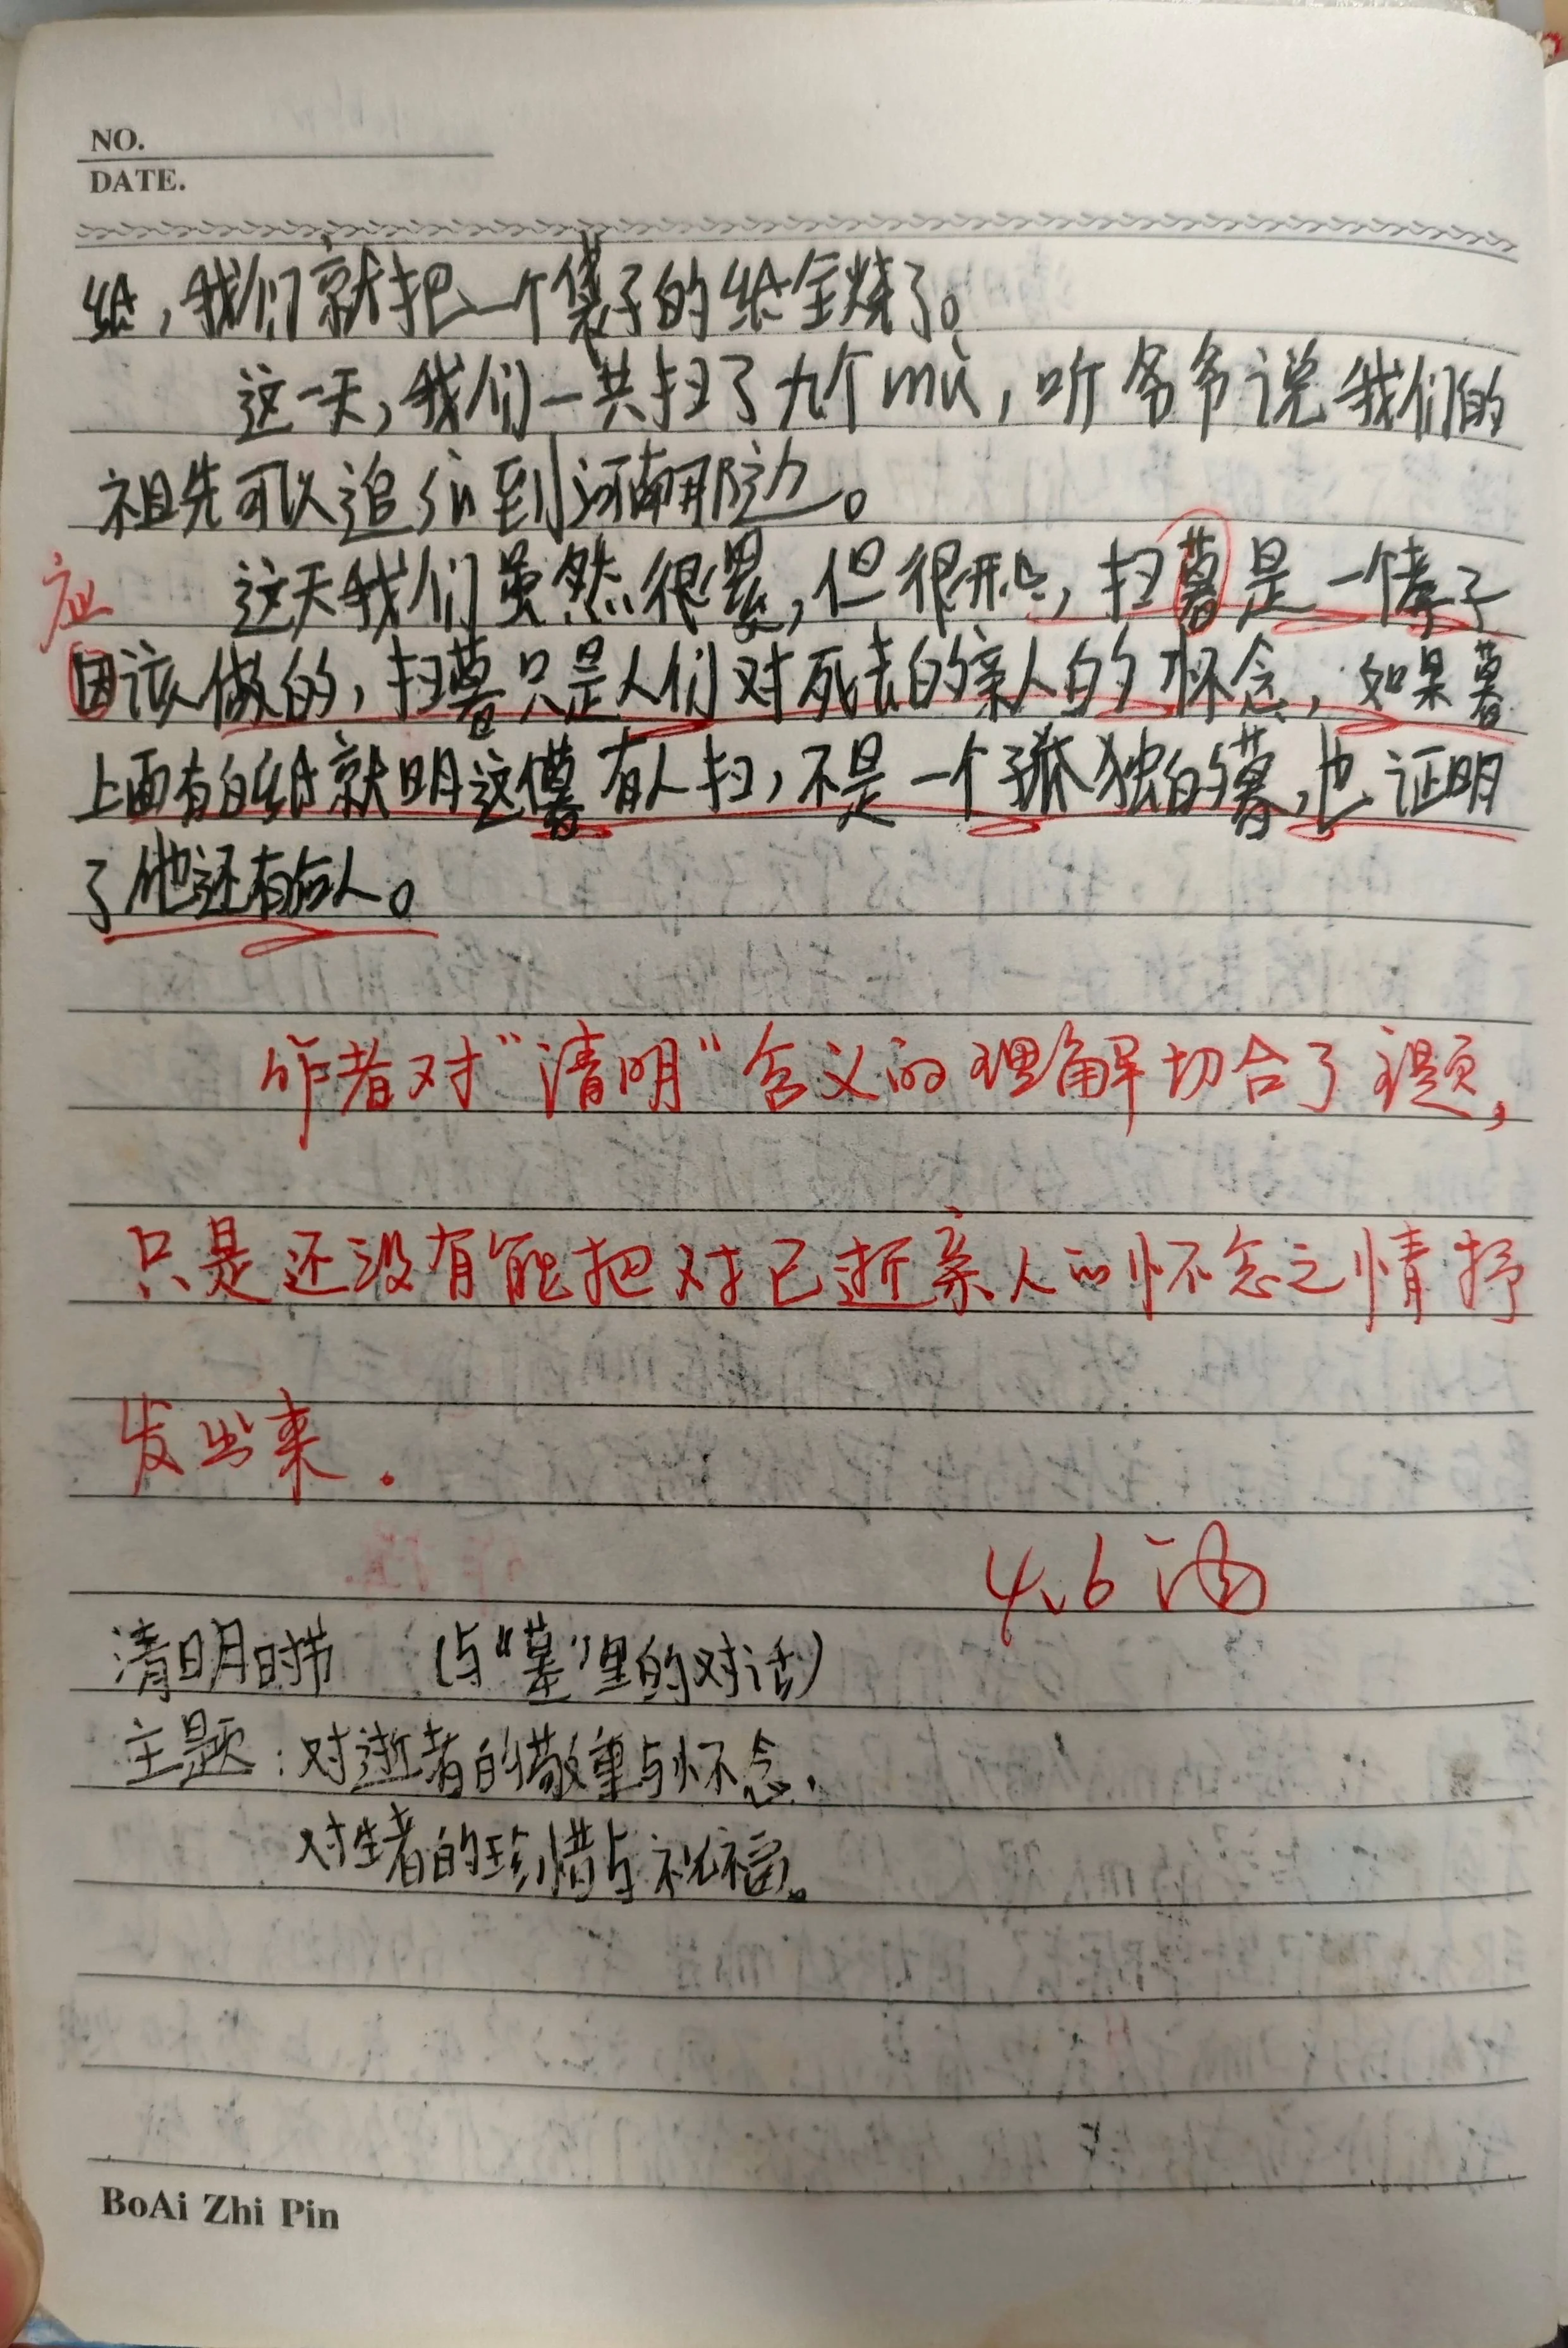 NO.
DATE.
纸，我们就把一个袋子的纸全烧了。
这一天，我们一共扫了九个mù，听爷爷说我们的
祖先可以追到河南那边。
应
这天我们虽然很累，但很开心，扫暮是一个孝子
因该做的，扫暮只是人们对死去的亲人的怀念，如果暮
上面有白纸就明这个暮有人扫，不是一个孤独的暮，也证明
了他还有后人。
作者对“清明”含义的理解切合了主题，
只是还没有能把对已逝亲人的怀念之情抒
发出来．
4.6
清明时节 （与“墓”里的对话）
主题：对逝者的敬重与怀念．
对生者的珍惜与祝福。
BoAi Zhi Pin